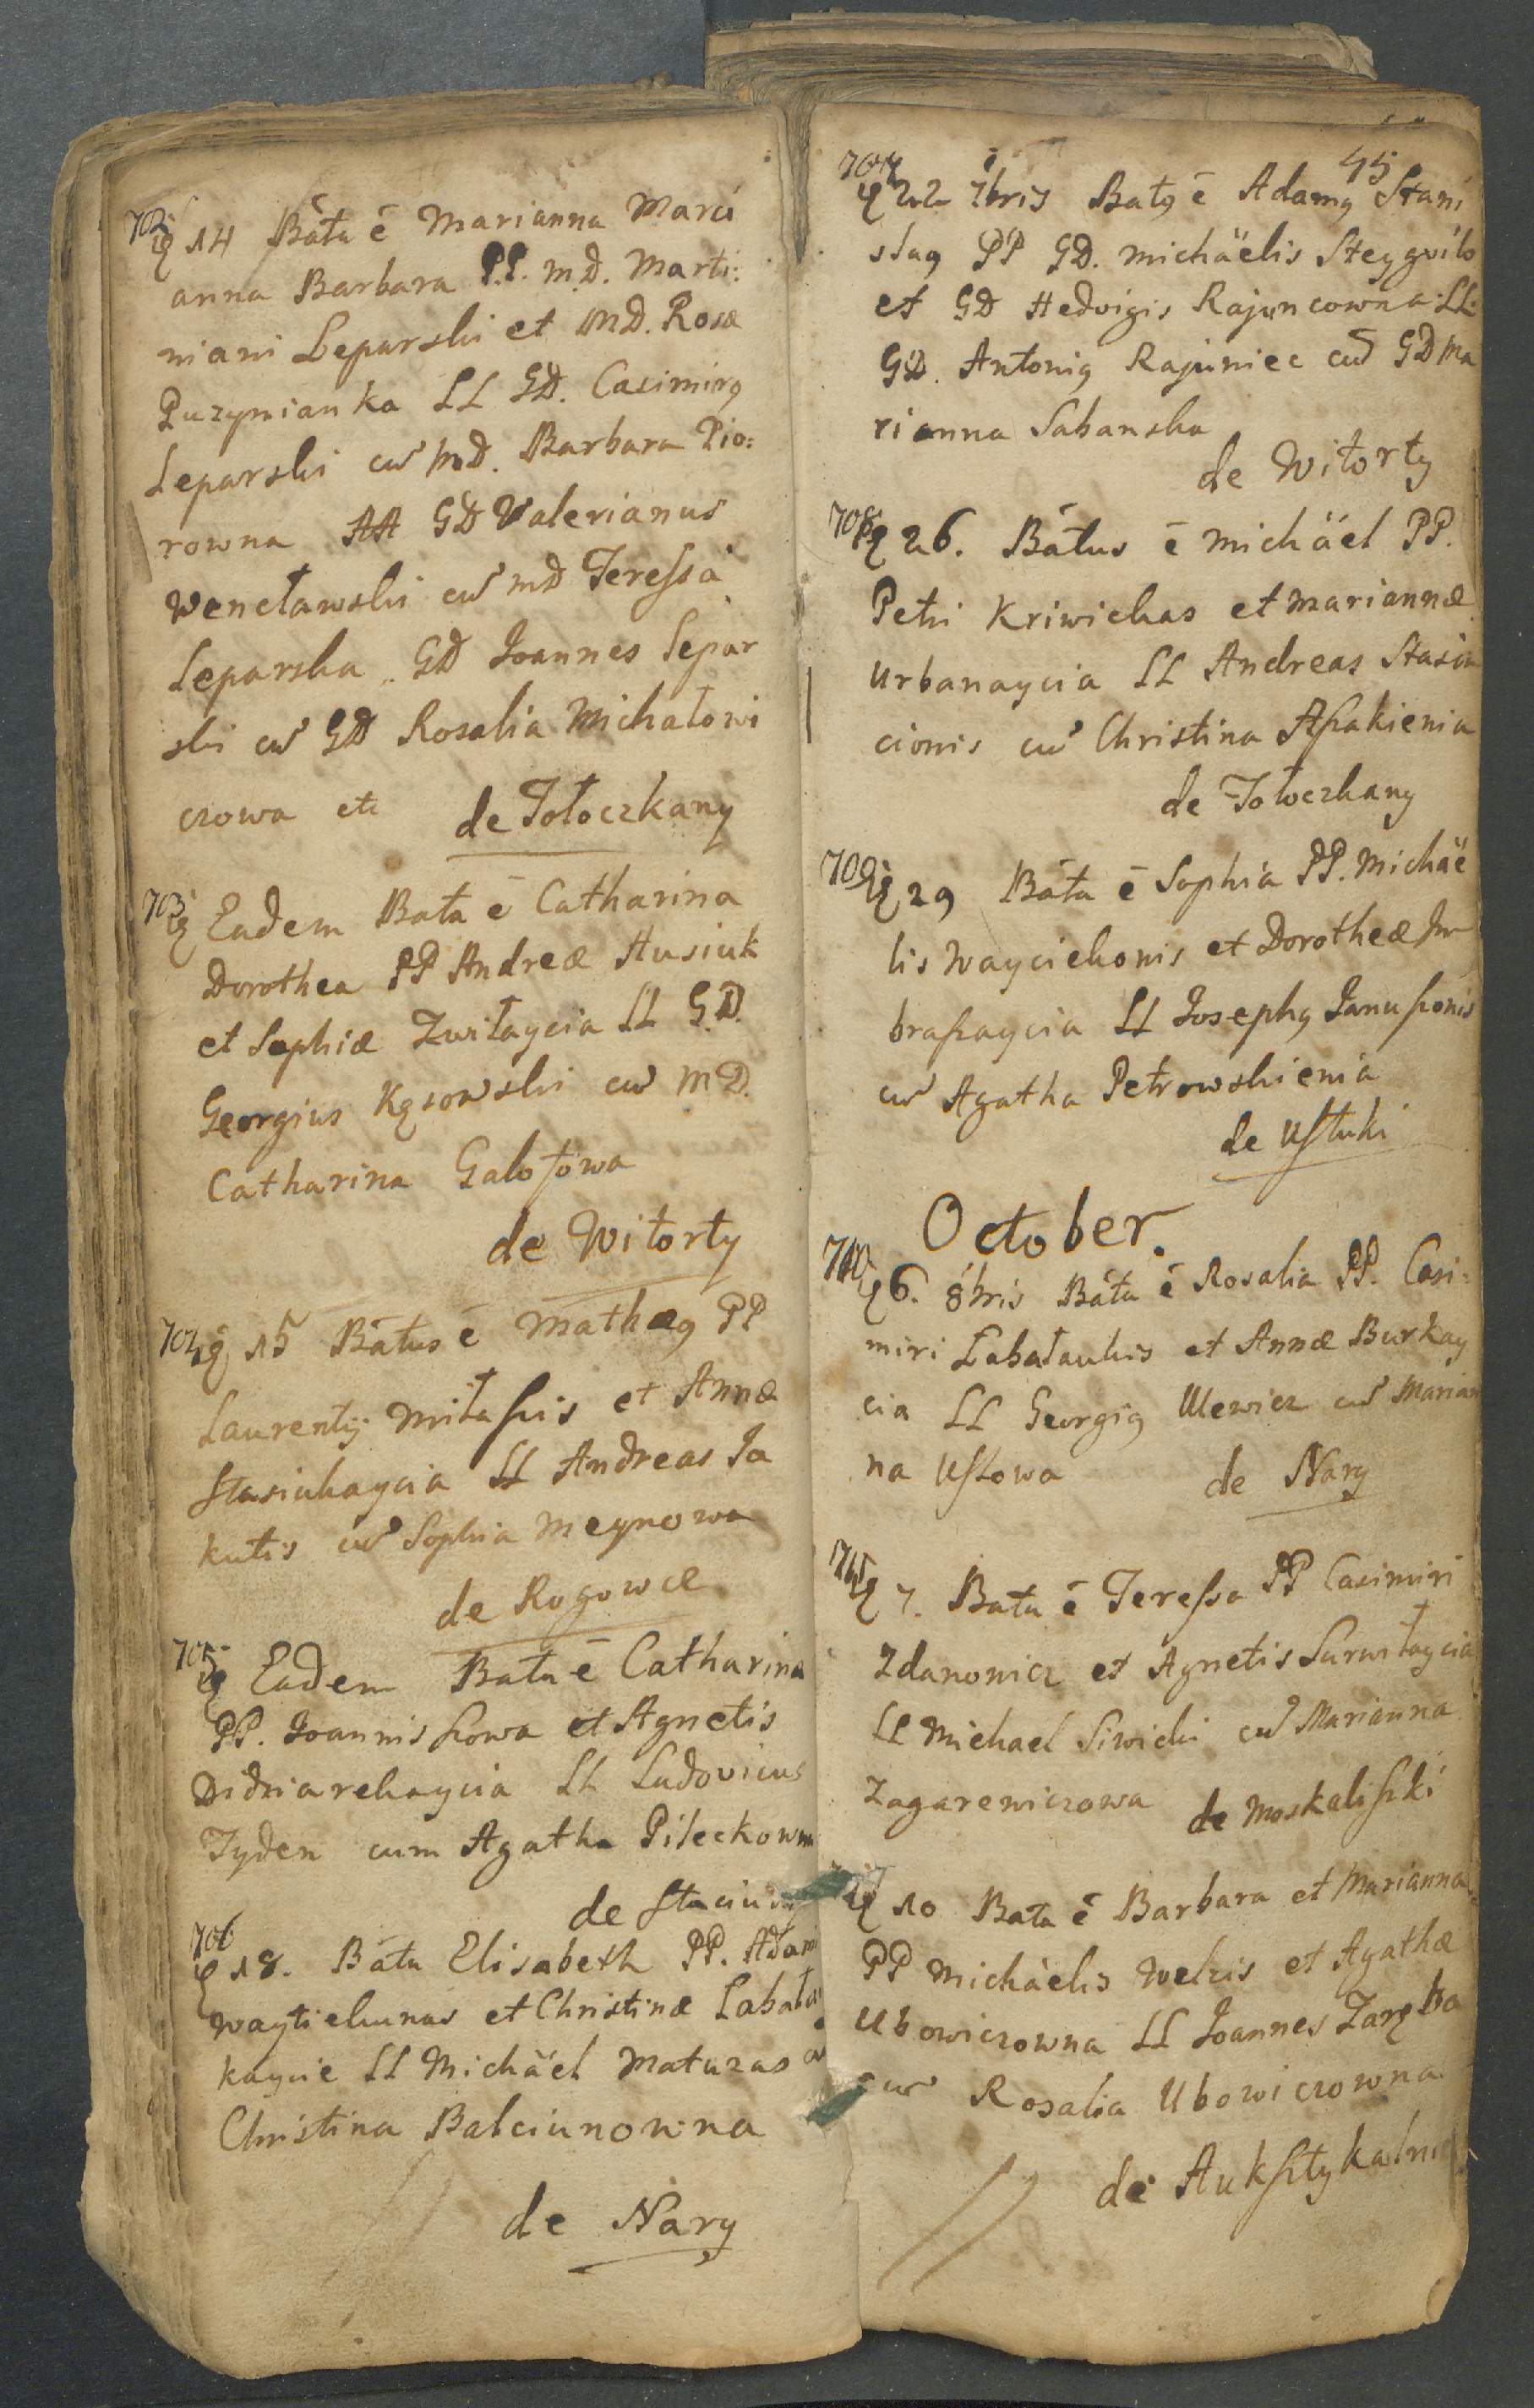 702 14 Bata ē Marianna Mari
anna Barbara P.P. M.D. Marti:
niani Leparski et MD. Rosæ
Puzynianka LL GD. Casimirq
Leparski cū MD. Barbara Pio:
rowna AA GD Valerianus
Wencławski cū MD Teressa
Leparska .. GD Joannes Lepar
ski cū GD Rosalia Michałowi
czowa etc de Tołoczkany
703 Eadem Bata ē Catharina
Dorothea PP Andreæ Ausiuk
et Sophiæ Zwiłaycia LL G.D.
Georgius Kęsowski cū MD.
Catharina Galofowa
de Witorty
704 15 Batus ē Mathæq PP
Laurentij Miłaszis et Annæ
Stasiukaycia LL Andreas Ja
kutis cū Sophia Meynowa
de Rogowce
705 Eadem Bata ē Catharina
PP. Joannis Szowa et Agnetis
Didziarekaycia LL Ludovicus
Tyden cum Agatha Pileckowna
de Staciuny
706 18. Bata Elisabeth PP. Adami
Waytiekunas et Christinæ Labała
kaycie LL Michäel Maturas cū
Christina Balciunowna
de Nary
45
707 22 7bris Batq ē Adamq Stani
slaq PP GD. Michäelis Steygviło
et GD Hedvigis Rajuncowna LL:
GD. Antoniq Rajuniec cū GD Ma
rianna Sabanska
de Witorty
708 26. Batus ē Michäel PP.
Petri Kriwickas et Mariannæ
Urbanaycia LL Andreas Stasiu
cionis cū Christina Aszakienia
de Tołoczkany
709 29 Bata ē Sophia PP. Michäe
lis Wayciekonis et Dorotheæ Am
braszaycia LL Josephq Januszonis
cū Agatha Petrowskienia
de Usztuki
October.
710 6. 8bris Bata ē Rosalia PP. Casi:
miri Łabałaukis et Annæ Burkay
cia LL Georgiq Ulewicz cū Marian
na Uszowa de Nary
711 7. Bata ē Teressa PP Casimiri
Zdanowicz et Agnetis Surwiłaycia
LL Michael Siwicki cū Marianna
Zagarewiczowa de Moskaliszki
10 Bata ē Barbara et Marianna
PP Michäelis Welzis et Agathæ
Ubowiczowna LL Joannes Zaręba
cū Rosalia Ubowiczowna
de Auksztykalnie